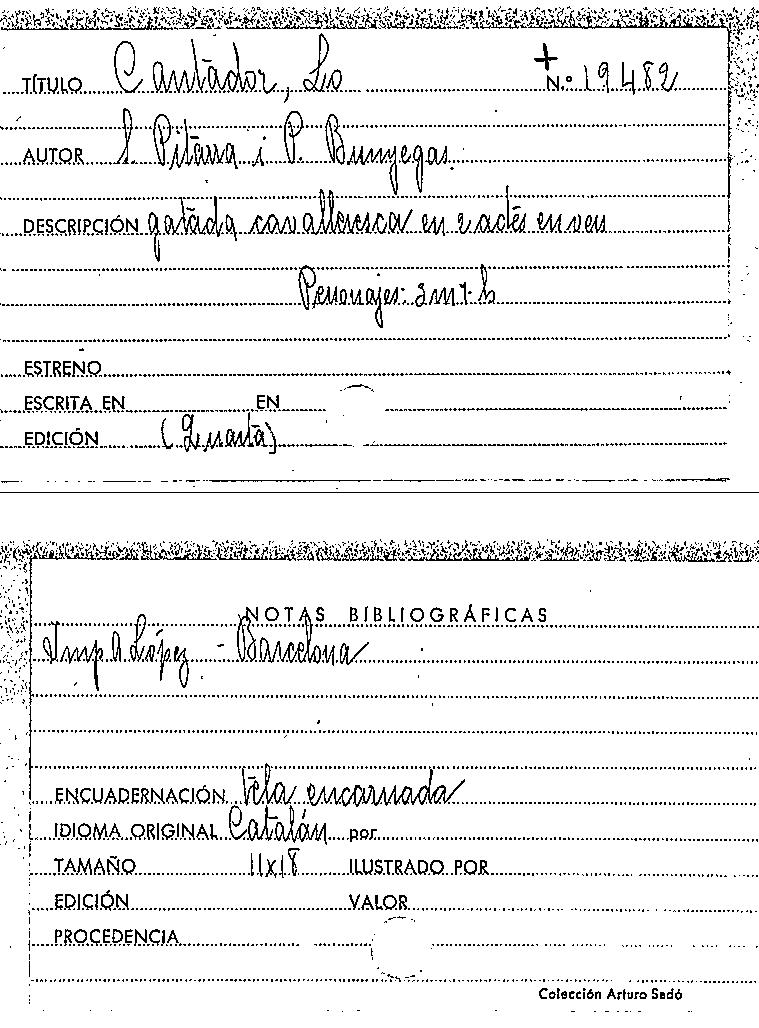 TÍTULO Cantador, Lo + N.º 19482
AUTOR S. Pitarra i P. Bunyegas.
DESCRIPCIÓN gatada cavalleresca en 2 actes en vers
Personajes: 3 m 7. h
ESTRENO
ESCRITA EN EN
EDICIÓN (Quarta)
NOTAS BIBLIOGRÁFICAS
Imp A López - Barcelona
ENCUADERNACIÓN Tela encarnada
IDIOMA ORIGINAL Catalán por
TAMAÑO 11x18 ILUSTRADO POR
EDICIÓN VALOR
PROCEDENCIA
Colección Arturo Sedó